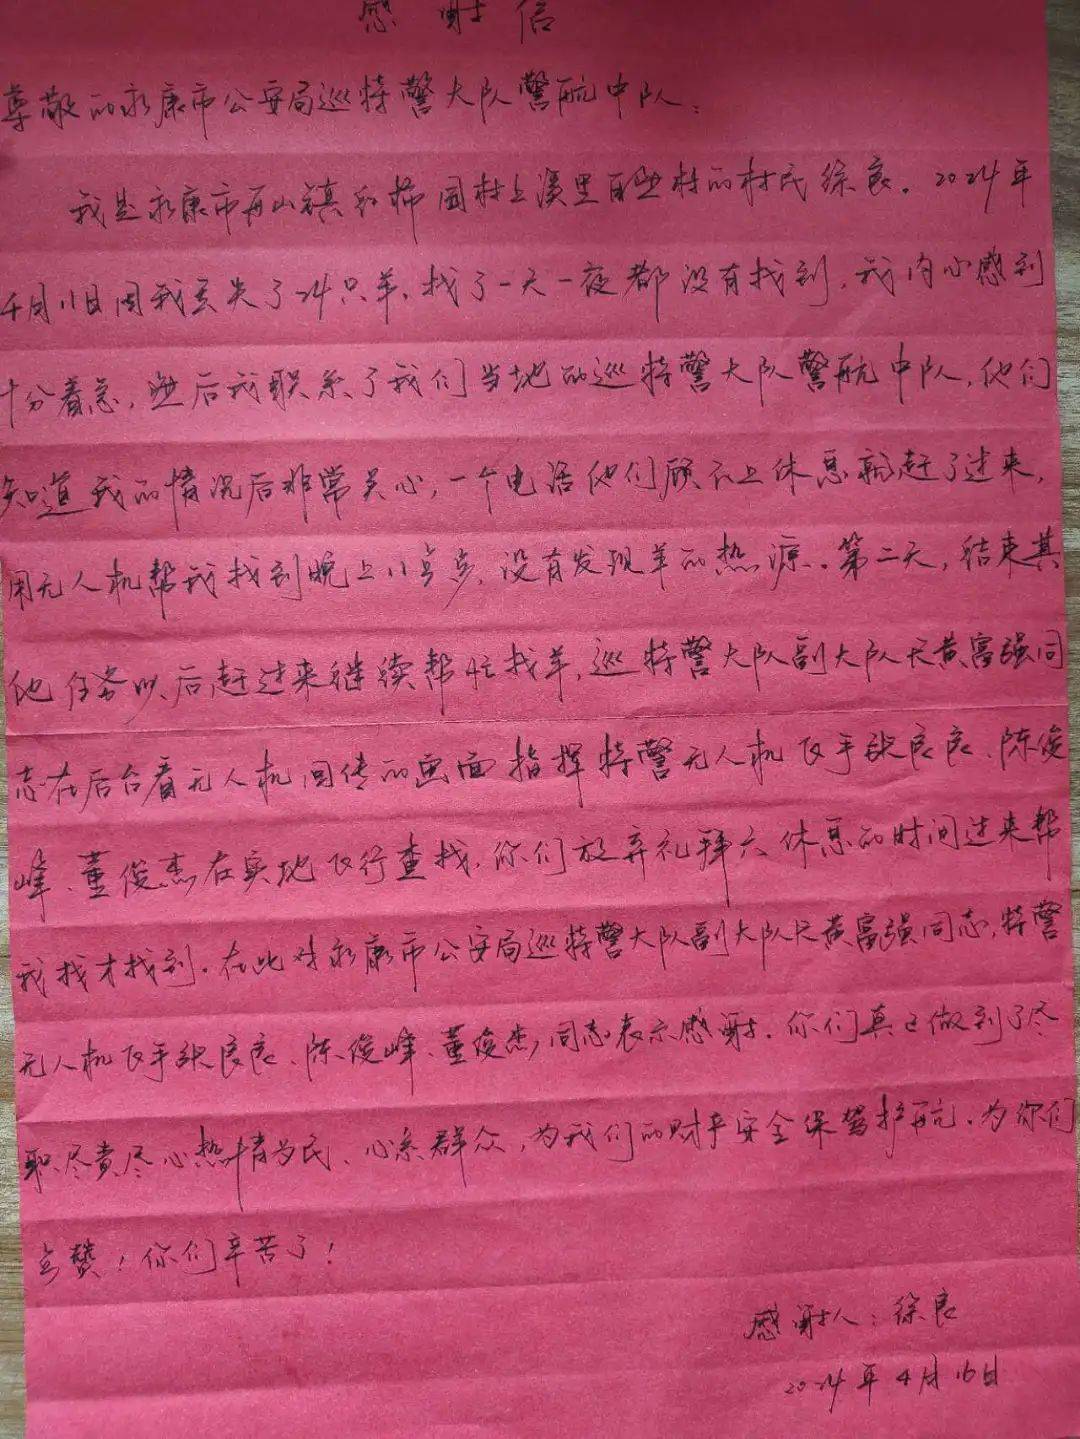 感谢信
尊敬的永康市公安局巡特警大队警航中队:
我是永康市舟山镇 园村上溪里自然村的村民徐良。2024年
4月11日因我丢失了24只羊,找了一天一夜都没有找到,我内心感到
十分着急,然后我联系了我们当地的巡特警大队警航中队,他们
知道我的情况后非常关心,一个电话他们顾不上休息就赶了过来,
用无人机帮我找到晚上11点多,没有发现羊的热源。第二天,结束其
他任务以后,赶过来继续帮忙找羊,巡特警大队副大队长黄富强同
志在后台看无人机回传的画面指挥特警无人机飞手张良良、陈俊
峰、董俊杰,在实地飞行查找,你们放弃礼拜六休息的时间过来帮
我找才找到。在此对永康市公安局巡特警大队副大队长黄富强同志,特警
无人机飞手张良良、陈俊峰、董俊杰,同志表示感谢。你们真正做到了尽
职尽责尽心热情为民、心系群众,为我们的财产安全保驾护航。为你们
点赞!你们辛苦了!
感谢人:徐良
2024年4月16日